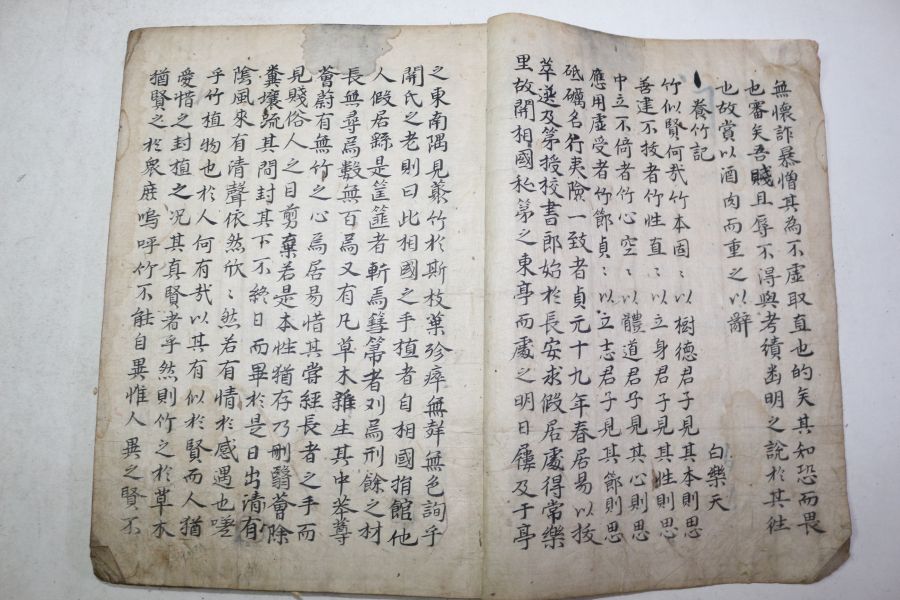 無懷詐暴憎其為不虛取直也的矣其知恐而畏
也審矣吾賤且辱不得與考績幽明之說於其往
也故賞以酒肉而重之以辭
養竹記 白樂天
竹似賢何哉竹本固〻以樹德君子見其本則思
善建不拔者竹性直〻以立身君子見其性則思
中立不倚者竹心空〻以體道君子見其心則思
應用虛受者竹節貞〻以立志君子見其節則思
砥礪名行夷險一致者貞元十九年春居易以拔
萃選及第授校書郎始於長安求假居處得常樂
里故開相國私第之東亭而處之明日屨及于亭
之東南隅見蕞竹於斯枝葉殄瘁無聲無色詢乎
開氏之老則曰此相國之手植者自相國捐館他
人假居繇是筐篚者斬焉篲箒者刈焉刑餘之材
長無尋焉數無百焉又有凡草木雜生其中菶䔿
薈蔚有無竹之心焉居易惜其嘗經長者之手而
見賤俗人之目剪棄若是本性猶存乃刪翳薈除
糞壤疏其間封其下不終日而畢於是日出清有
陰風來有清聲依然欣〻然若有情於感遇也嗟
乎竹植物也於人何有哉以其有似於賢而人猶
愛惜之封植之况其真賢者乎然則竹之於草木
猶賢之於衆庶嗚呼竹不能自異惟人異之賢不